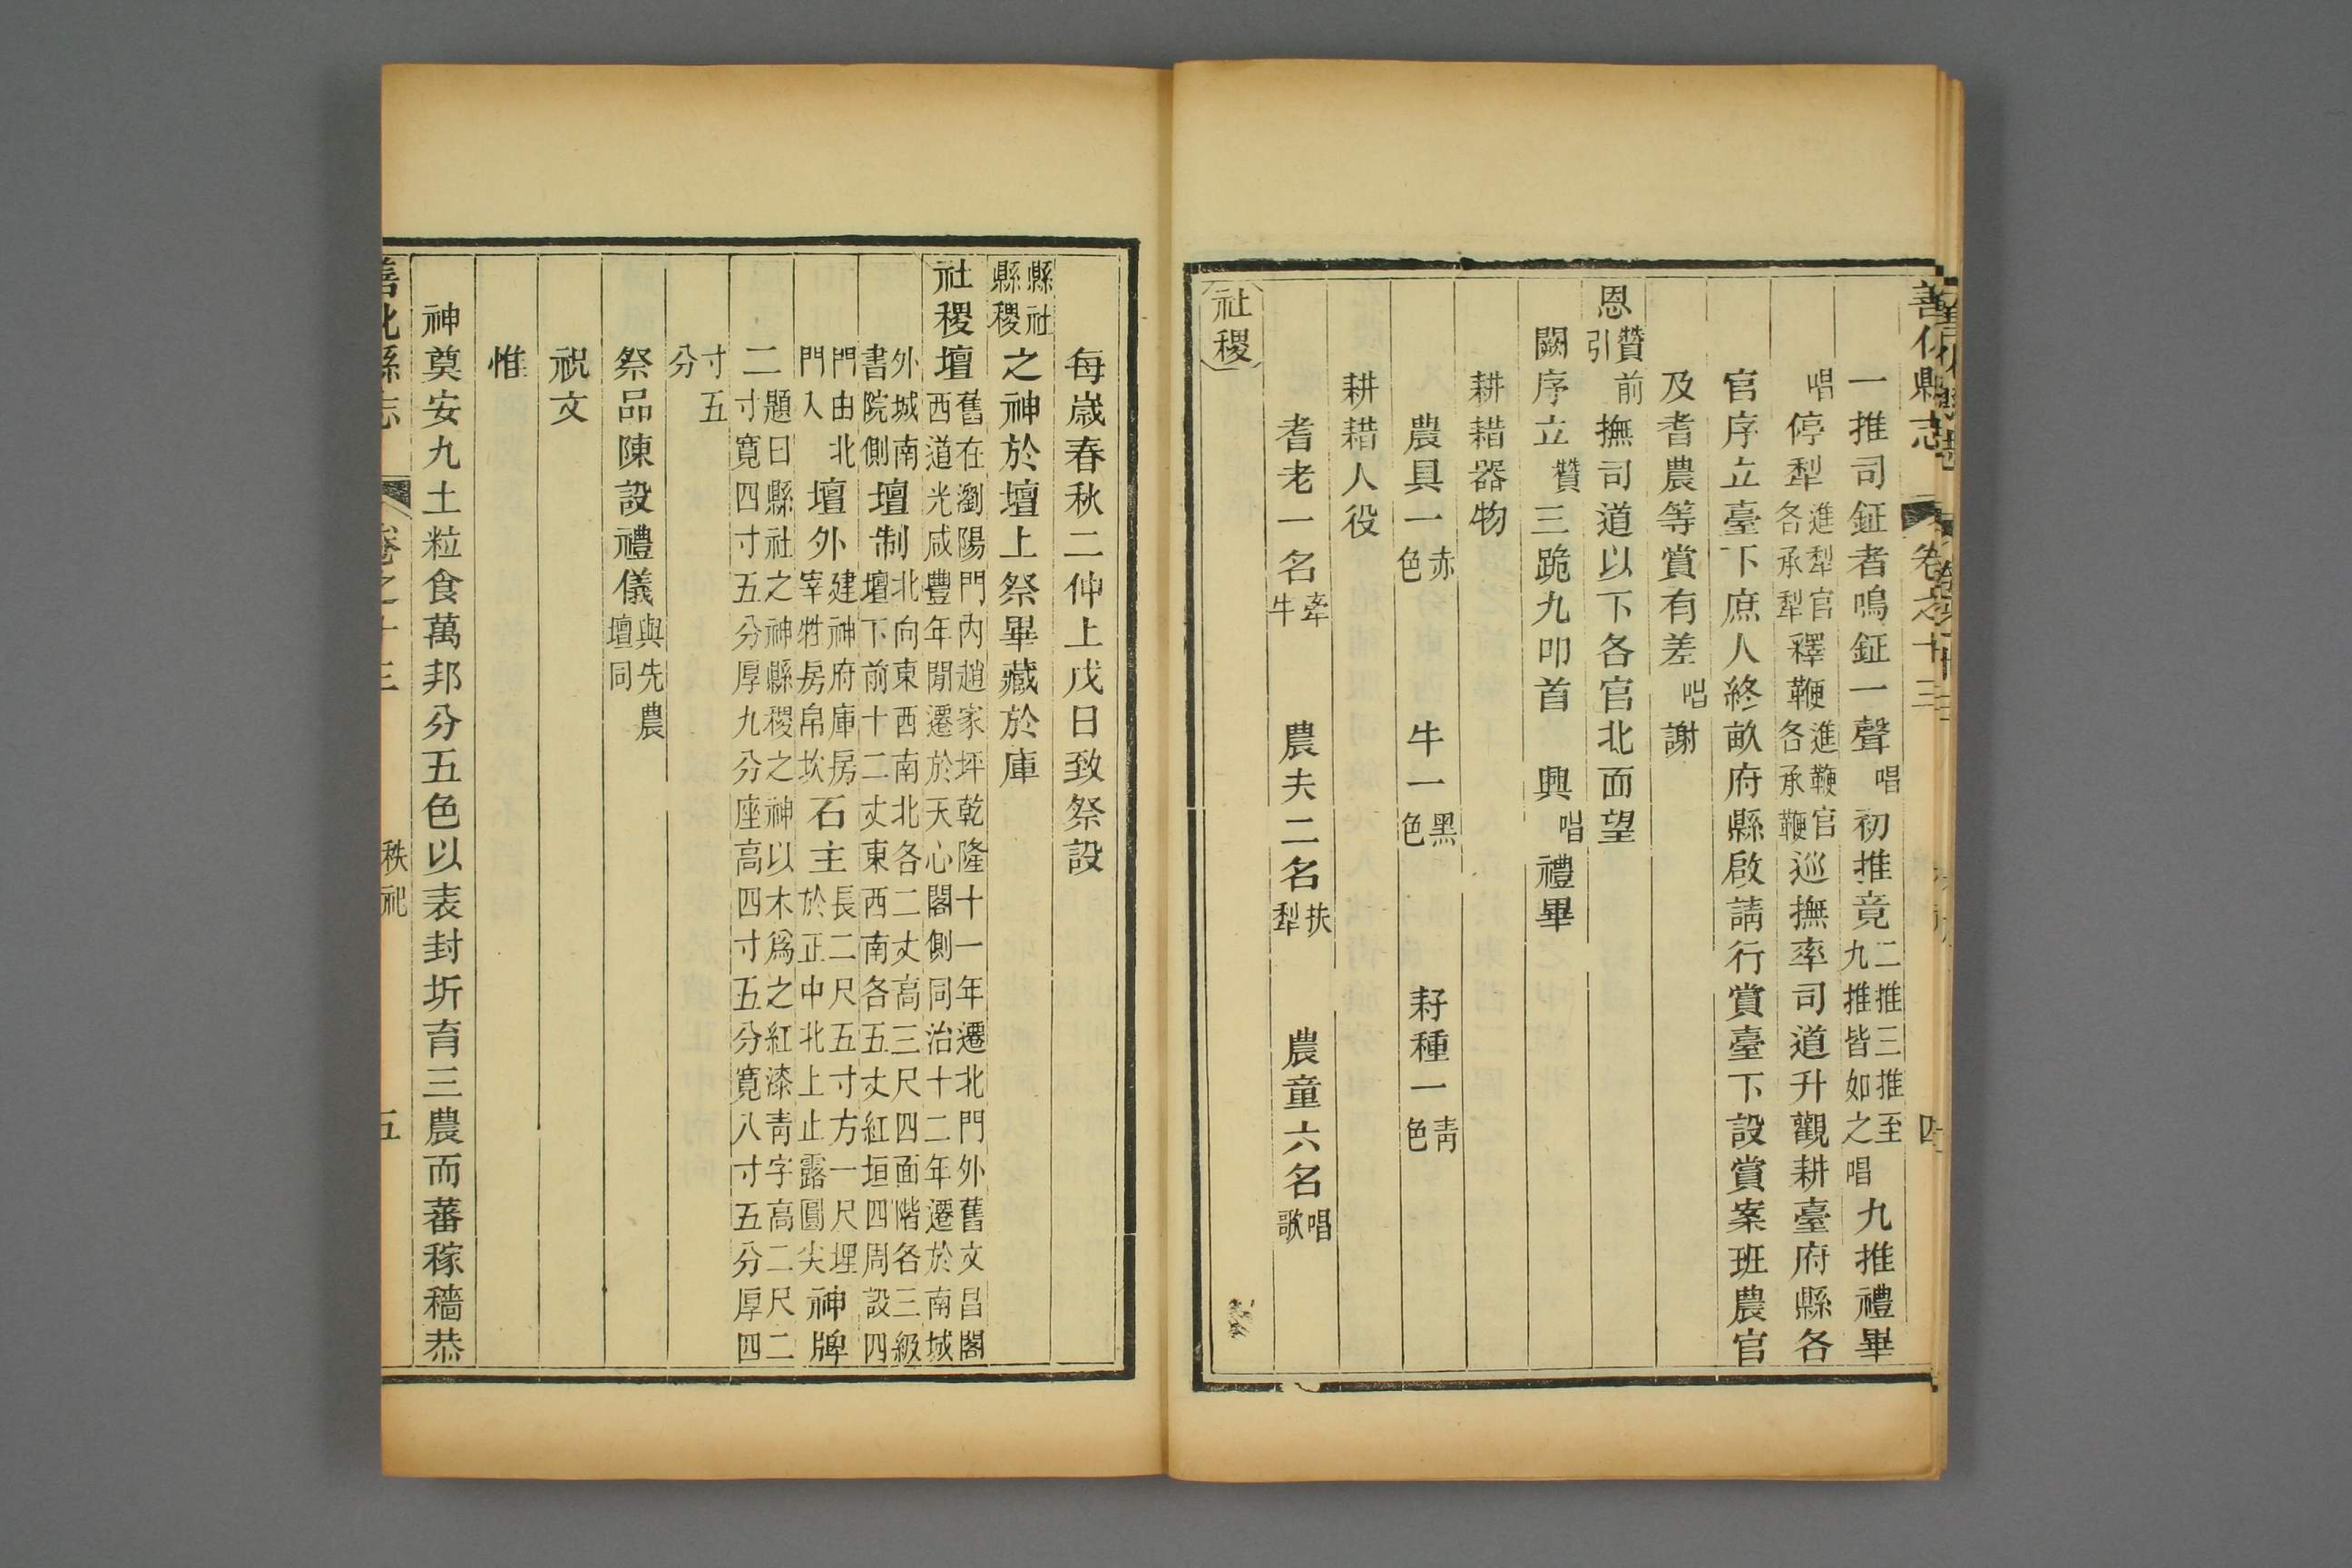 善化縣志 卷之十三 四
一推司鉦者鳴鉦一聲唱初推竟二推三推至九推皆如之唱九推禮畢
唱停犁進犁官各承犁釋鞭進鞭官各承鞭巡撫率司道升觀耕臺府縣各
官序立臺下庶人終畝府縣啟請行賞臺下設賞案班農官
及耆農等賞有差唱謝
恩贊引前撫司道以下各官北面望
闕序立贊三跪九叩首興唱禮畢
耕耤器物
農具一赤色 牛一黑色 耔種一青色
耕耤人役
耆老一名牽牛 農夫二名扶犁 農童六名唱歌
社稷
每歲春秋二仲上戊日致祭設
縣社縣稷之神於壇上祭畢藏於庫
社稷壇舊在瀏陽門內趙家坪乾隆十一年遷北門外舊文昌閣西道光咸豐年間遷於天心閣側同治十二年遷於南城
外城南書院側壇制北向東西南北各二丈高三尺四面階各三級壇下前十二丈東西南各五丈紅垣四周設四
門由北門入壇外建神府庫房宰牲房帛坎石主長二尺五寸方一尺埋於正中北上止露圓尖神牌
二題曰縣社之神縣稷之神以木爲之紅漆青字高二尺二寸寬四寸五分厚九分座高四寸五分寬八寸五分厚四
寸五分
祭品陳設禮儀與先農壇同
祝文
惟
神奠安九土粒食萬邦分五色以表封圻育三農而蕃稼穡恭
善化縣志 卷之十三 秩祀 五